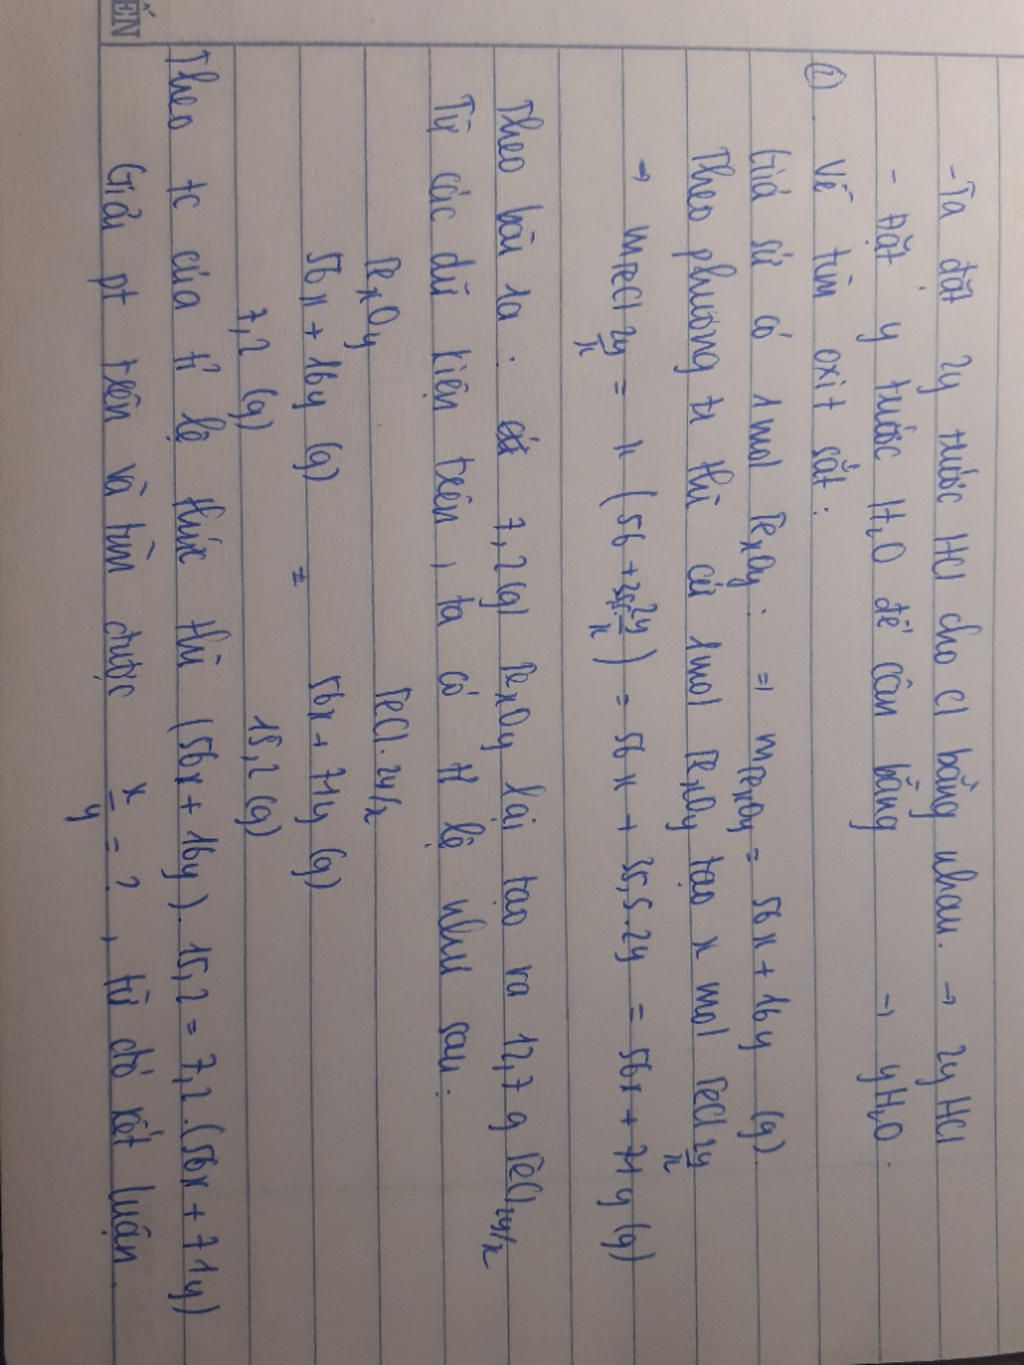 ẾN
- Ta đặt 2y trước HCl cho Cl bằng nhau. → 2y HCl
- Đặt y trước H₂O để cân bằng → yH₂O.
① Về tìm oxit sắt:
Giả sử có 1 mol FexOy: ⇒ mFexOy = 56x + 16y (g).
Theo phương tr thì cứ 1 mol FexOy tạo x mol FeCl2y/x
→ mFeCl2y/x = x (56 + 35,5.2y/x) = 56x + 35,5.2y = 56x + 71y (g)
Theo bài ra: cứ 7,2(g) FexOy lại tạo ra 12,7 g FeCl2y/x
Từ các dữ kiện trên, ta có tỉ lệ như sau:
FexOy FeCl.2y/x
56x + 16y (g) = 56x + 71y (g)
7,2 (g) 15,2 (g)
Theo tc của tỉ lệ thức thì (56x + 16y). 15,2 = 7,2.(56x + 71y)
Giải pt trên và tìm được x/y = ?, từ đó kết luận.